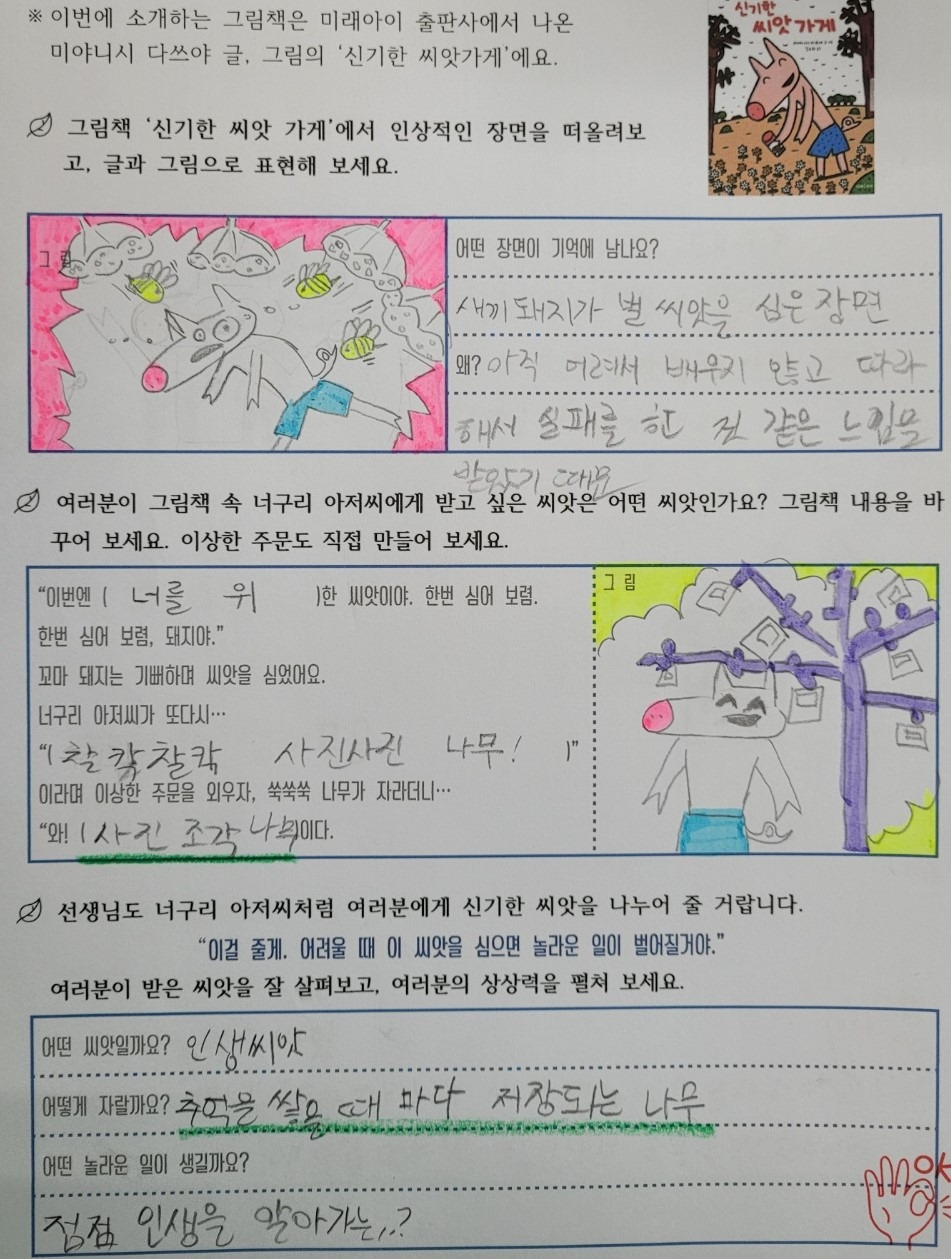 ※ 이번에 소개하는 그림책은 미래아이 출판사에서 나온
미야니시 다쓰야 글, 그림의 ‘신기한 씨앗가게’에요.
신기한
씨앗가게
그림책 ‘신기한 씨앗 가게’에서 인상적인 장면을 떠올려보
고, 글과 그림으로 표현해 보세요.
그림
어떤 장면이 기억에 남나요?
새끼돼지가 벌 씨앗을 심은 장면
왜? 아직 어려서 배우지 않고 따라
해서 실패를 한 것 같은 느낌을
받았기 때문
여러분이 그림책 속 너구리 아저씨에게 받고 싶은 씨앗은 어떤 씨앗인가요? 그림책 내용을 바
꾸어 보세요. 이상한 주문도 직접 만들어 보세요.
“이번엔 ( 너를 위 )한 씨앗이야. 한번 심어 보렴.
한번 심어 보렴, 돼지야.”
꼬마 돼지는 기뻐하며 씨앗을 심었어요.
너구리 아저씨가 또다시…
“( 찰칵찰칵 사진사진 나무! )”
이라며 이상한 주문을 외우자, 쑥쑥쑥 나무가 자라더니…
“와! ( 사진 조각 나무이다.
그림
선생님도 너구리 아저씨처럼 여러분에게 신기한 씨앗을 나누어 줄 거랍니다.
“이걸 줄게. 어려울 때 이 씨앗을 심으면 놀라운 일이 벌어질거야.”
여러분이 받은 씨앗을 잘 살펴보고, 여러분의 상상력을 펼쳐 보세요.
어떤 씨앗일까요? 인생씨앗
어떻게 자랄까요? 추억을 쌓을 때 마다 저장되는 나무
어떤 놀라운 일이 생길까요?
점점 인생을 알아가는,.?